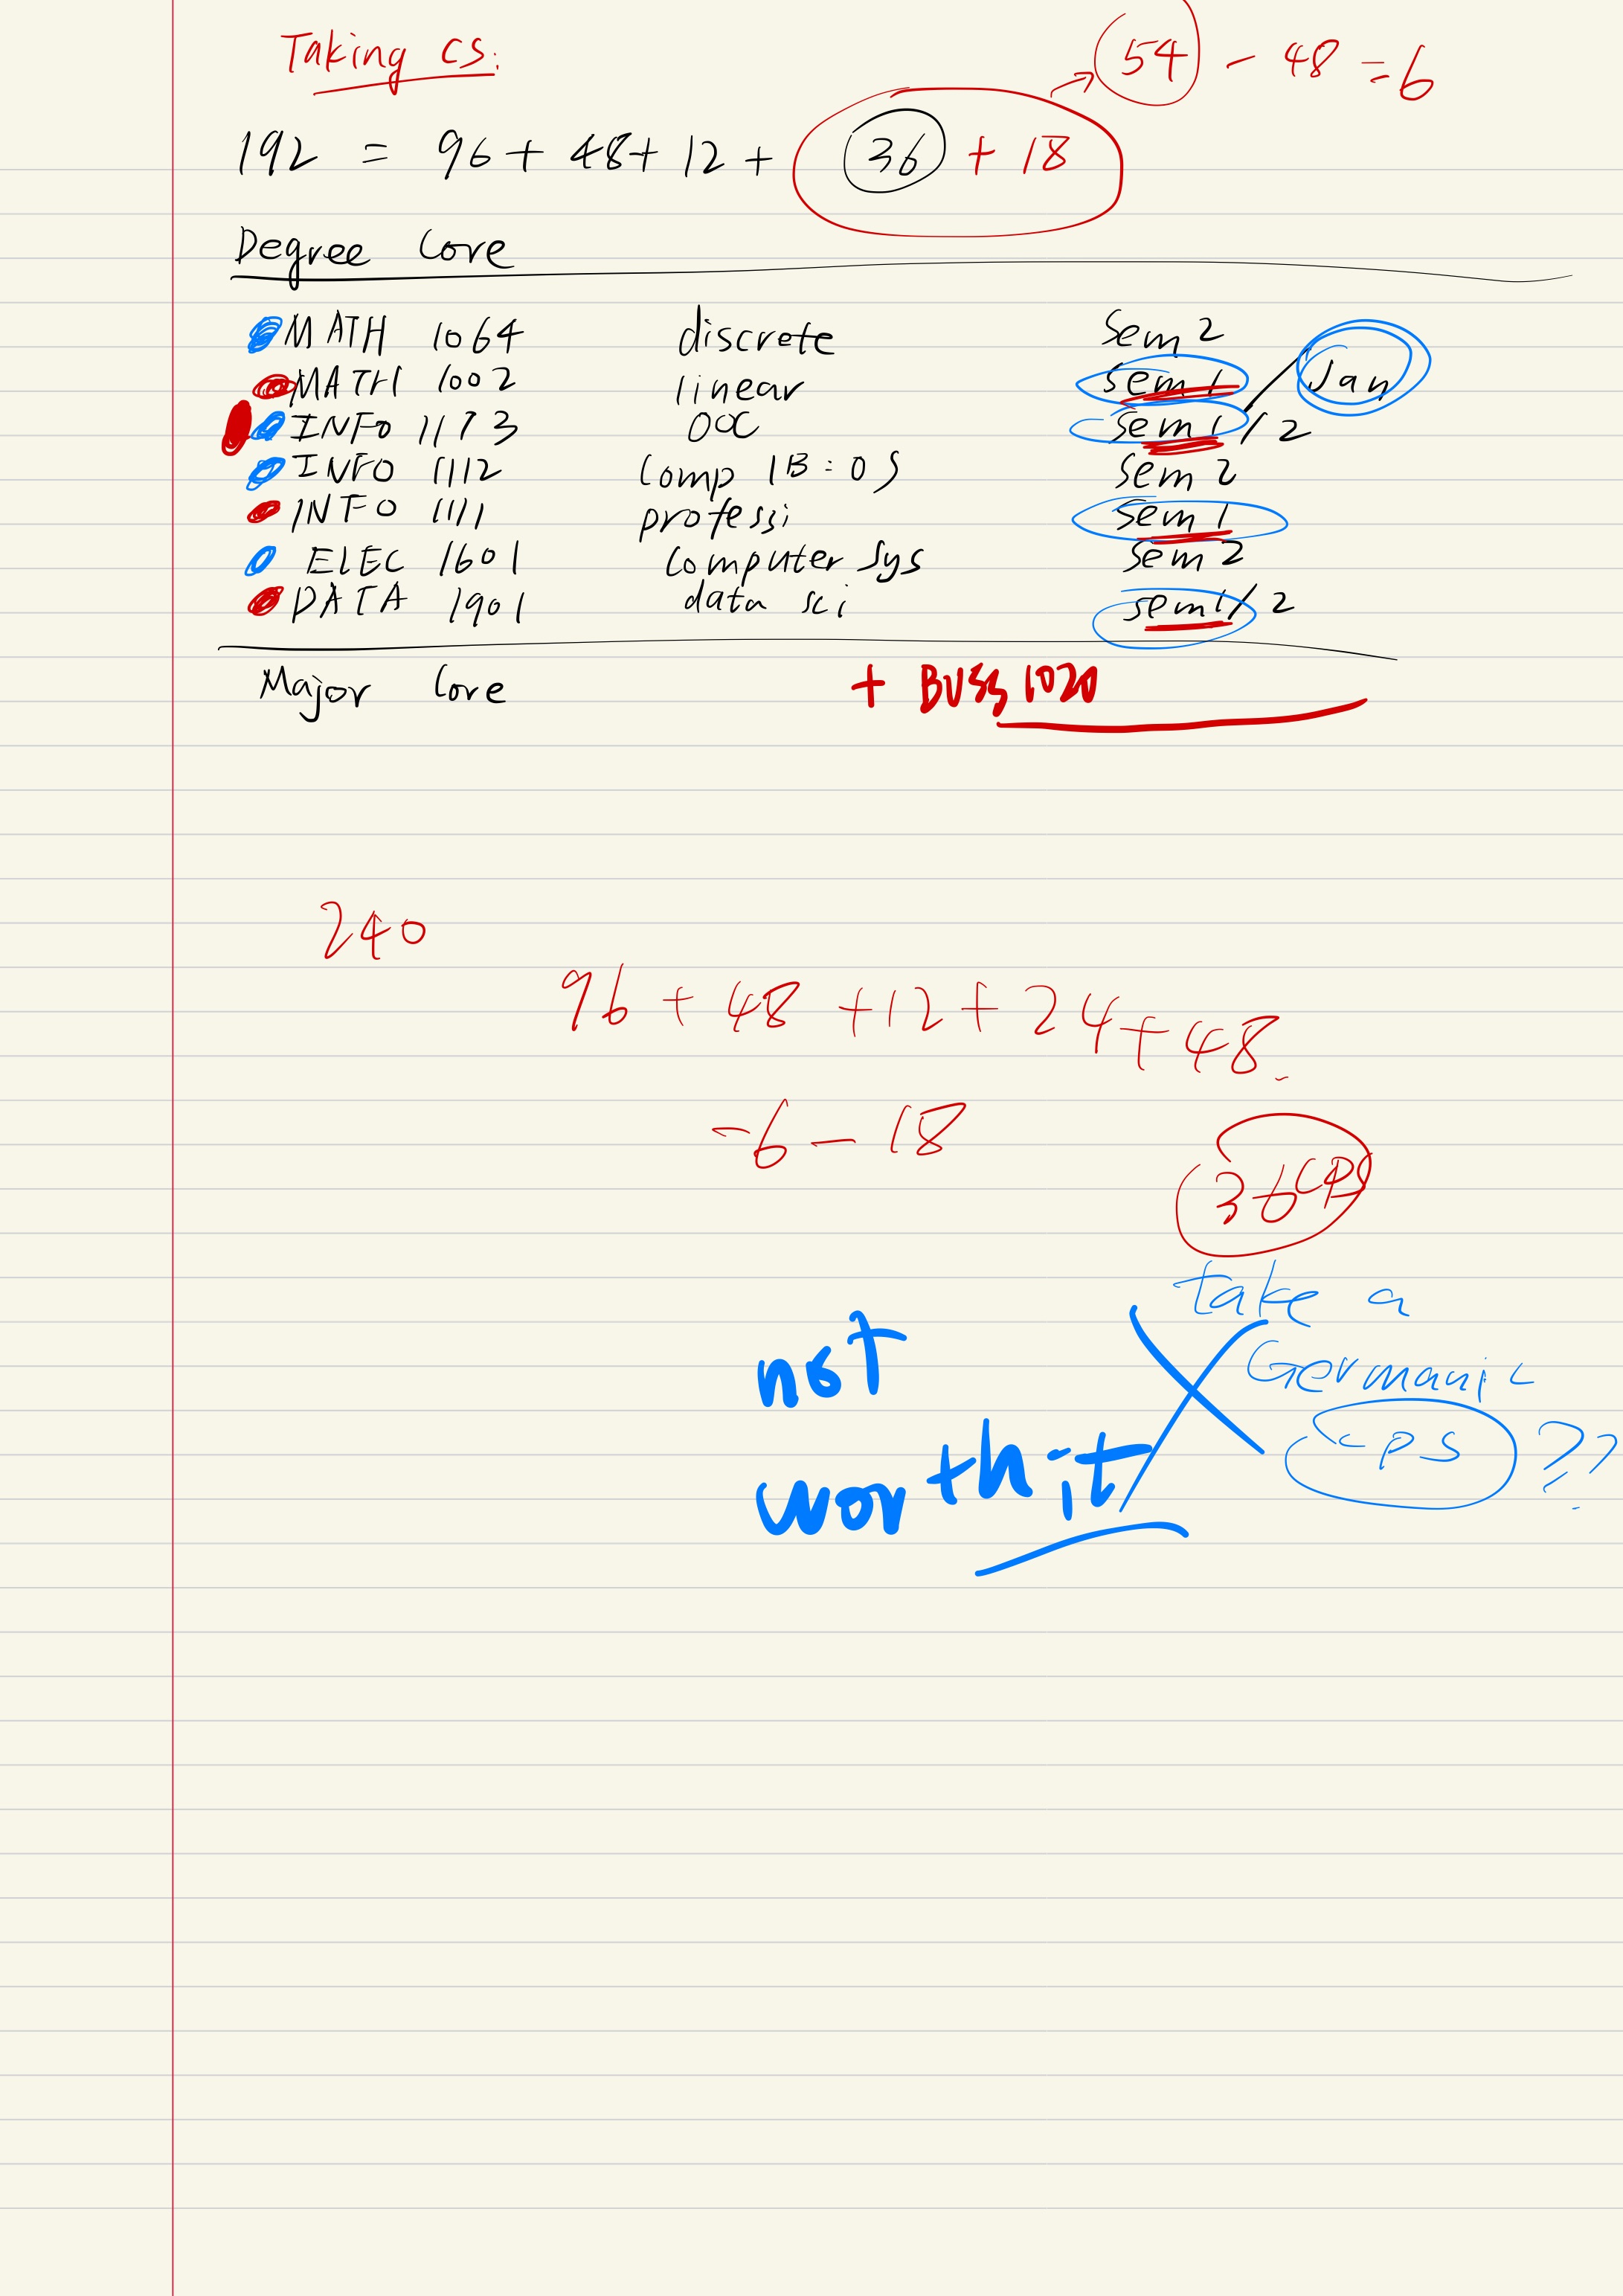 Taking CS:
54 - 48 = 6
192 = 96 + 48 + 12 + 36 + 18
Degree Core
MATH 1064 discrete Sem 2
MATH 1002 linear Sem 1 / Jan
INFO 1113 OOC Sem 1 / 2
INFO 1112 Comp 1B : OS Sem 2
INFO 1111 professi Sem 1
ELEC 1601 Computer Sys Sem 2
DATA 1901 data sci sem 1 / 2
Major Core + BUSS 1020
240
96 + 48 + 12 + 24 + 48
- 6 - 18
36 CPs
take a
Germanic
cps ??
not
worth it